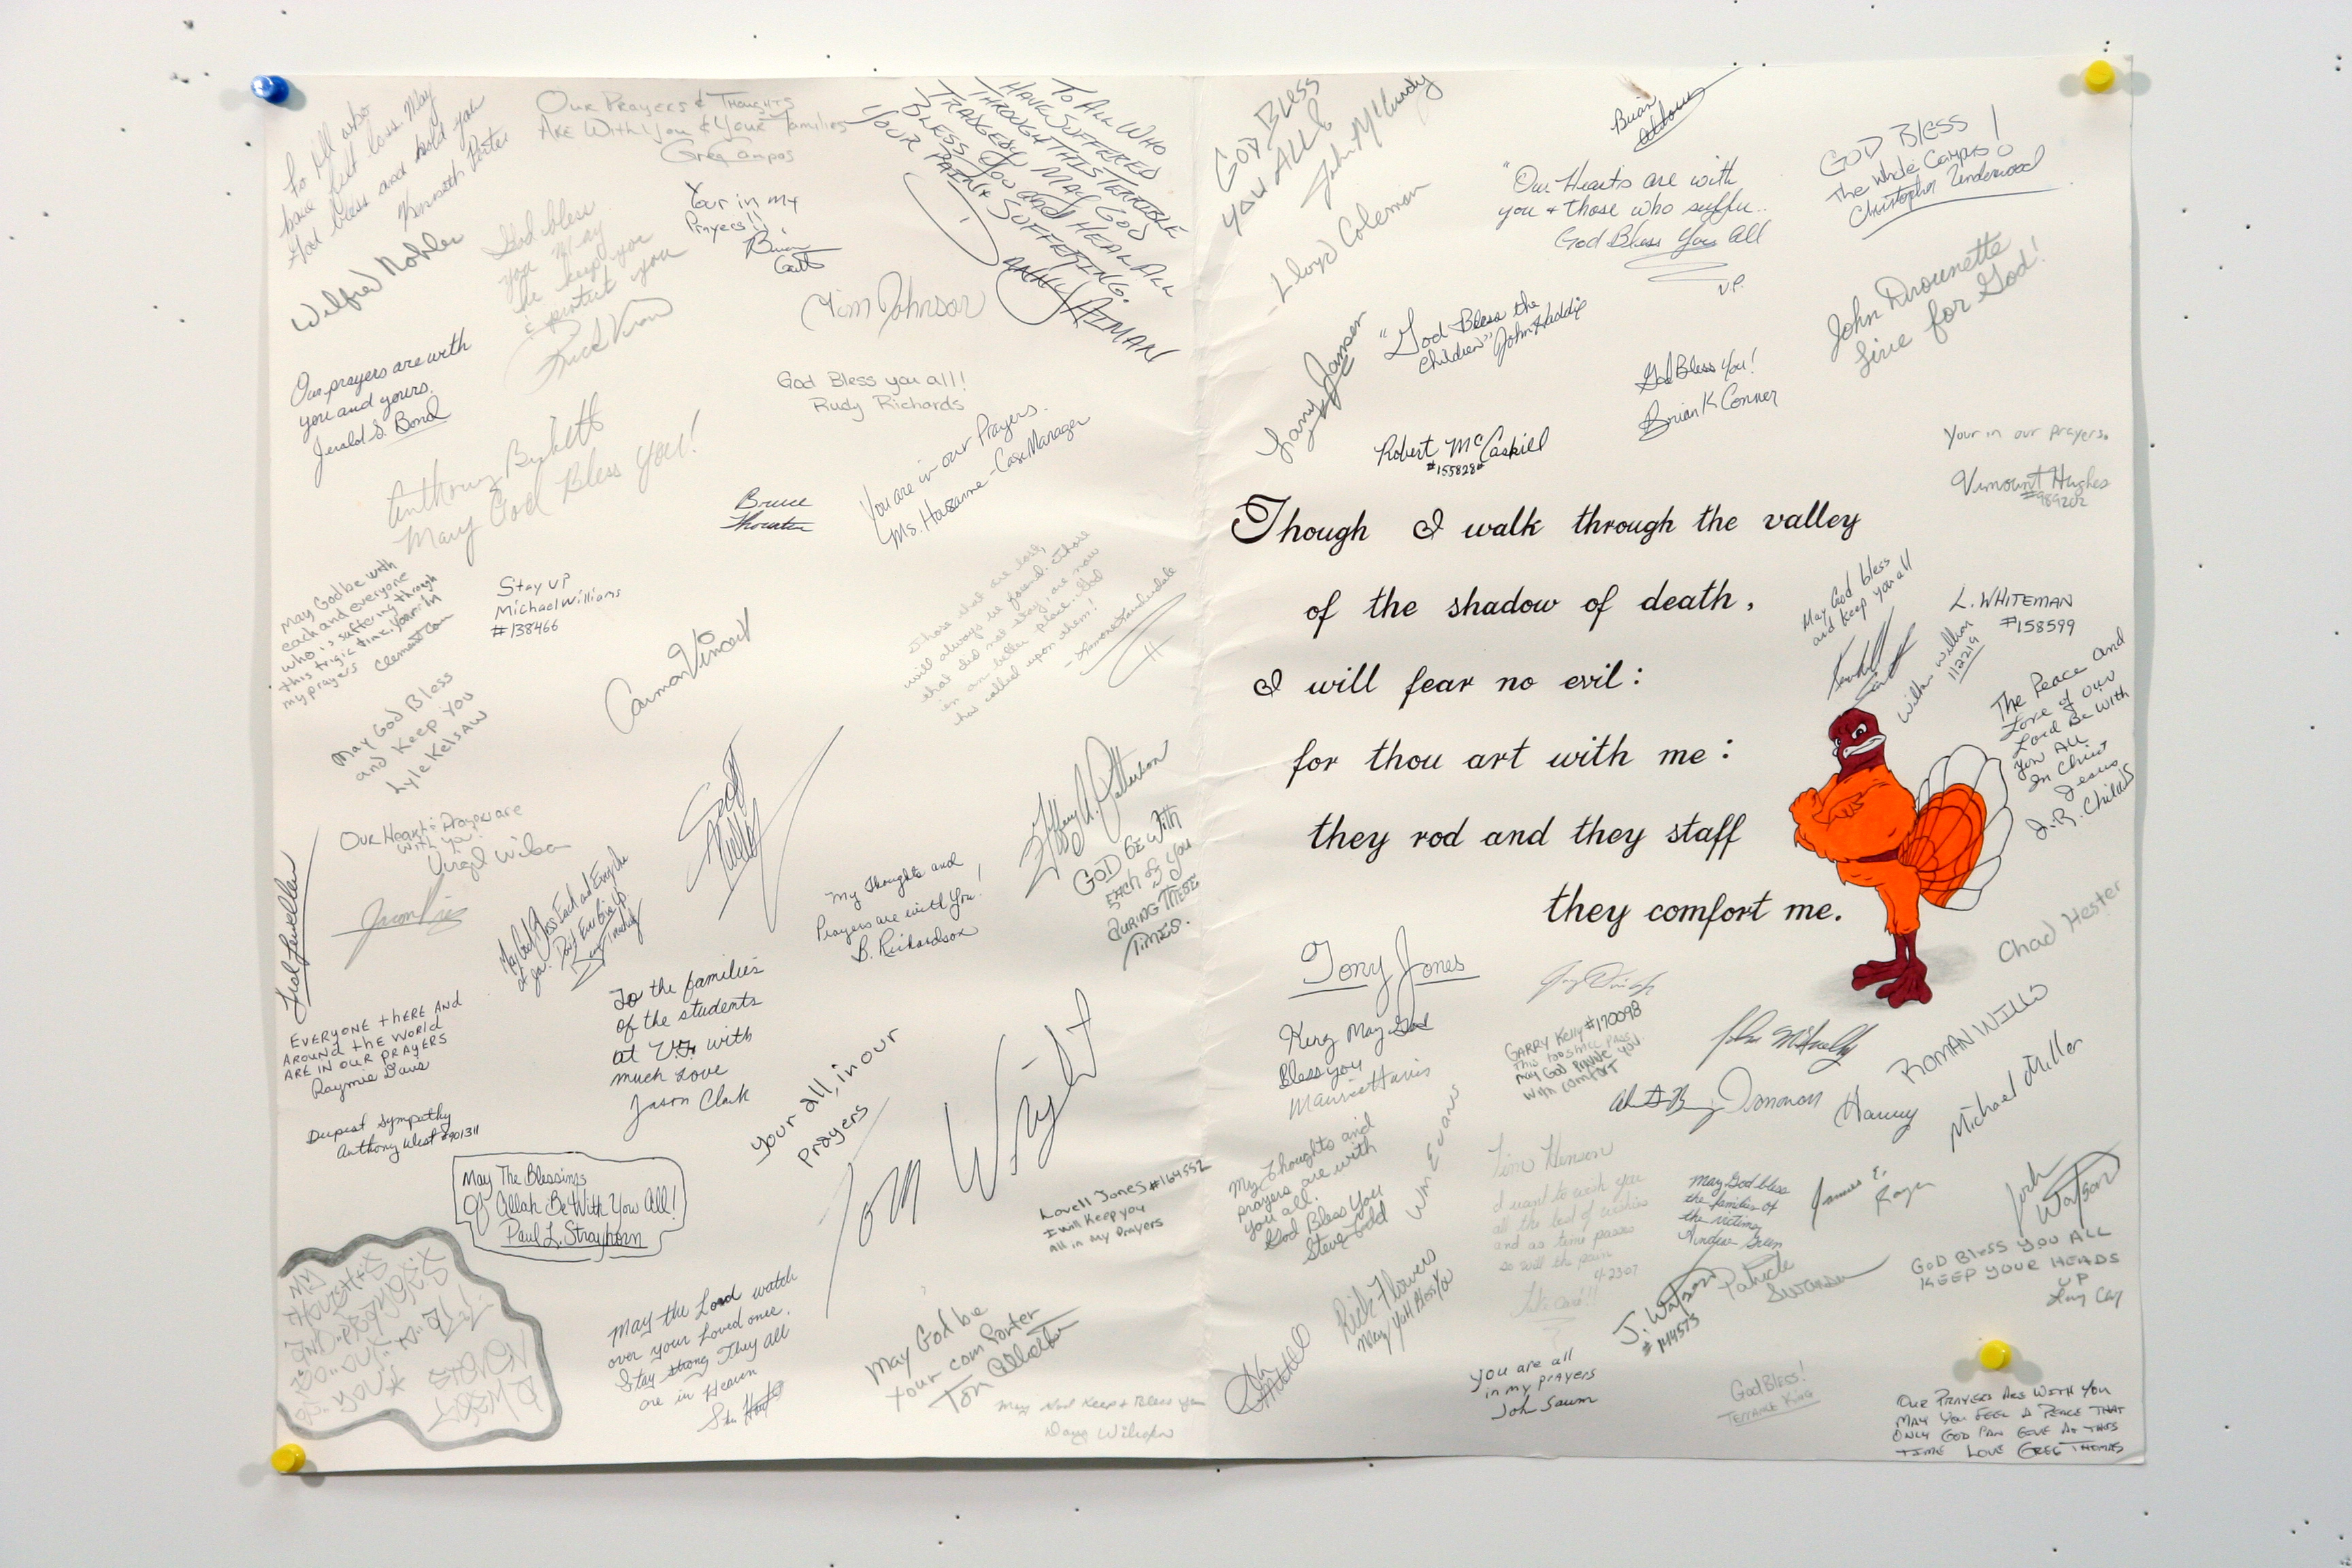 To All who
have felt loss May
God bless and hold you
Kenneth Porter
Our Prayers & Thoughts
Are With You & Your Families
Greg Campos
To All Who
Have Suffered
Through This Terrible
Trangedy May God
Bless You and Heal All
Your Pain & Suffering.
Wilfred
God bless
you May
he keep you
& protect you
Your in my
Prayers!!
Brian
Tim Johnson
Our prayers are with
you and yours.
Jerald S. Bond
God Bless you all!
Rudy Richards
Anthony
May God Bless You!
You are in our Prayers.
Ms. - Case Manager
Bruce
May God be with
each and everyone
who is suffering through
this trigic time. Your in
my prayers
Stay up
Michael Williams
#138466
Those that are lost,
will always be found. Those
that did not stay, are now
in an better place. God
has called upon them!
Carmon Vincent
May God Bless
and Keep You
Lyle Kelsaw
Our Heart & Prayer are
with you
Virgil Wilson
Scott
Jeffery A. Patterson
God be with
each of you
during these
times.
Fred Lewellen
Jason
May God Bless Each and Everyone
of you.
"My Thoughts and
Prayers are with You!
B. Richardson
To the families
of the students
at V.T. with
much Love
Jason Clark
Everyone there and
around the world
are in our prayers
Raymie Davis
Your all, in our
Prayers
Tom Wright
Deepest Sympathy
Anthony West #901311
May The Blessings
Of Allah Be With You All!
Paul L. Strayhorn
Lovell Jones #164552
I will Keep you
All in my Prayers
My
May the Lord watch
over your Loved ones.
Stay strong They all
are in Heaven
May God be
your comforter
May God Keep & Bless You
Doug
God Bless
you All!
John McCurdy
Lloyd Coleman
Brian
"Our Hearts are with
you & those who suffer..
God Bless You All
V.P.
God Bless!
The Whole Campus
Christopher Underwood
Larry
"God Bless the
Children"
John
John Drounette
Live for God!
God Bless You!
Brian K Conner
Robert McCaskill
#155828
Your in our prayers.
Hughes
#989202
Though I walk through the valley
of the shadow of death,
I will fear no evil:
for thou art with me:
they rod and they staff
they comfort me.
May God bless
and keep you all
L. Whiteman
#158599
William
112219
The Peace and
Love of our
Lord Be with
you All
In Christ
Jesus
J.R. Childs
Chad Hester
Tony Jones
May God
Bless you
Maurice Harris
Garry Kelly #170098
May God Provide You
with comfort
Roman Willo
Michael Miller
Donovan Harvey
My Thoughts and
prayers are with
you all.
God Bless You
Steve Todd
Wm Evans
Tim Henson
I want to wish you
all the best of wishes
and as time passes
so will the pain
4-23-07
Take care!!
May God bless
the families of
the victims
Andrew Green
James E.
Josh
Watson
God Bless you all
Keep your heads
up
Rick Flowers
May Yah Bless You
J. Watson
#144573
Patrick
you are all
in my prayers
John Saum
God Bless!
Terrance King
Our Prayers Are With You
May You Feel A Peace That
Only God Can Give At This
Time Love Greg Thomas